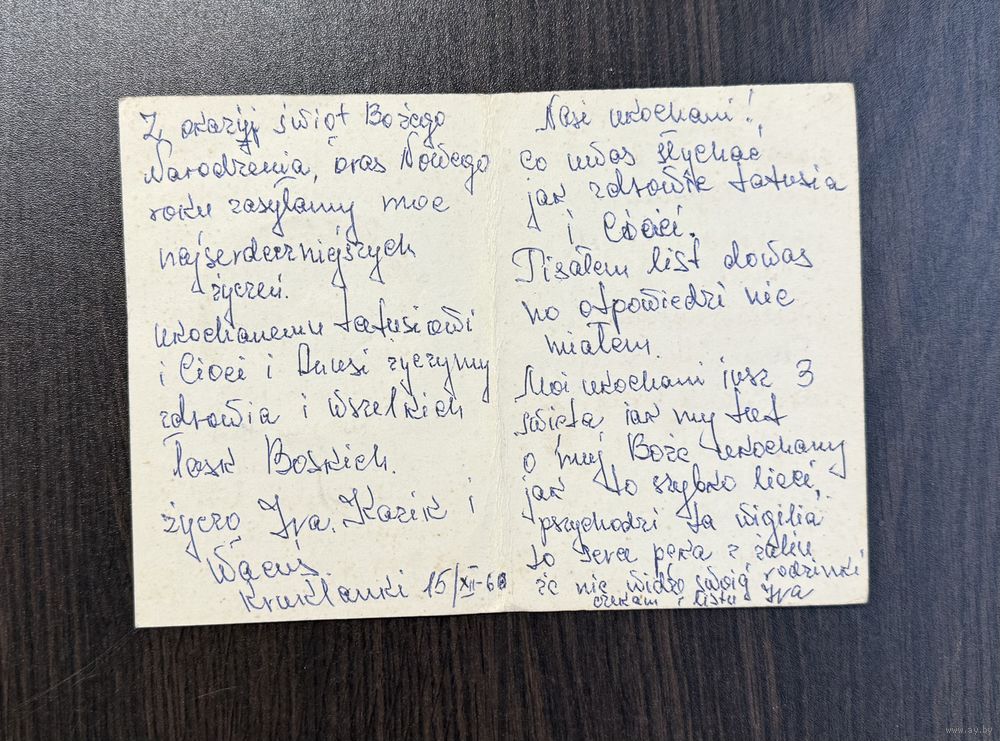 Z okazyj świąt Bożego
Narodzenia, oras Nowego
roku zasyłamy moc
najserdeczniejszych
życzeń.
ukochanemu tatusiowi
i Cioci i Anusi życzymy
zdrowia i wszelkich
Łask Boskich.
życzo Ira. Kazik i
Wacuś.
Kruklanki 15/XII-60
Nasi ukochani!
co uwas słychać
jak zdrowie tatusia
i Cioci.
Pisałem list dowas
no otpowiedzi nie
miałem.
Moi ukochani jusz 3
święta jak my tut
o muj Boże ukochany
jak to szybko lieci,
pszychodzi ta wigilia
to serce pęka z żaliu
że nie widzo swoią rodzinki
czekam listu Ira
www.ay.by